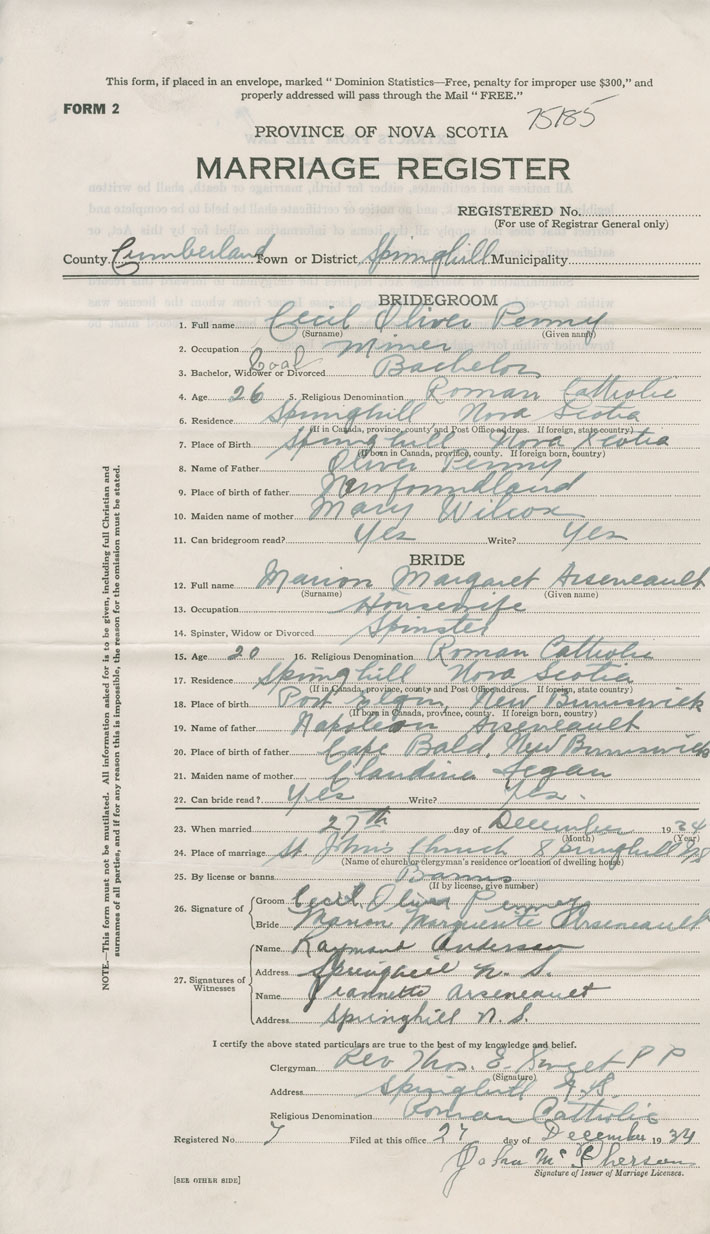 This form, if placed in an envelope, marked " Dominion Statistics—Free, penalty for improper use $300," and
properly addressed will pass through the Mail " FREE."
FORM 2
75185
PROVINCE OF NOVA SCOTIA
MARRIAGE REGISTER
REGISTERED No.
(For use of Registrar General only)
County. Cumberland Town or District. Springhill Municipality
BRIDEGROOM
1. Full name Cecil Oliver Penny
(Surname) (Given name)
2. Occupation Coal Miner
3. Bachelor, Widower or Divorced Bachelor
4. Age 26 5. Religious Denomination Roman Catholic
6. Residence Springhill Nova Scotia
(If in Canada, province, county and Post Office address. If foreign, state country)
7. Place of Birth Springhill Nova Scotia
(If born in Canada, province, county. If foreign born, country)
8. Name of Father Oliver Penny
9. Place of birth of father Newfoundland
10. Maiden name of mother Mary Wilcox
11. Can bridegroom read? Yes Write? Yes
BRIDE
12. Full name Marion Margaret Arseneault
(Surname) (Given name)
13. Occupation Housewife
14. Spinster, Widow or Divorced Spinster
15. Age 20 16. Religious Denomination Roman Catholic
17. Residence Springhill Nova Scotia
(If in Canada, province, county and Post Office address. If foreign, state country)
18. Place of Birth Port Elgin, New Brunswick
(If born in Canada, province, county. If foreign born, country)
19. Name of father Napoleon Arseneault
20. Place of birth of father Cape Bald, New Brunswick
21. Maiden name of mother Claudina
22. Can bride read? Yes Write? Yes.
23. When married 27th day of December 1934
(Month) (Year)
24. Place of marriage St John's Church Springhill NS
(Name of church or clergyman's residence or location of dwelling house)
25. By license or banns Banns
(If by license, give number)
26. Signature of
Groom Cecil Oliver Penney
Bride Marion Marguerite Arseneault
27. Signatures of Witnesses
Name Raymond Anderson
Address Springhill N. S.
Name Jeannette Arseneault
Address Springhill N. S.
I certify the above stated particulars are true to the best of my knowledge and belief.
Clergyman Rev Thos. E. Sweet P P
(Signature)
Address Springhill N.S.
Religious Denomination Roman Catholic
Registered No. 7 Filed at this office 27 day of December 1934
John McPherson
Signature of Issuer of Marriage Licenses.
[SEE OTHER SIDE]
NOTE.—This form must not be mutilated. All information asked for is to be given, including full Christian and
surnames of all parties, and if for any reason this is impossible, the reason for the omission must be stated.